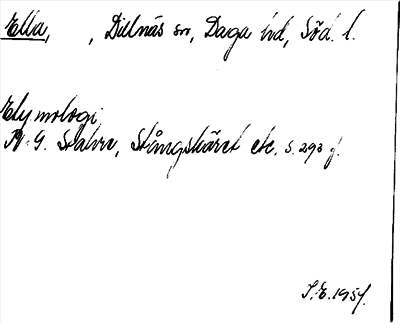 Ella, , Dillnäs sn, Daga hd, Söd. l.
Etymologi
N. G. Stahre, Stångskäret etc. s. 293 f.
S.E. 1954.